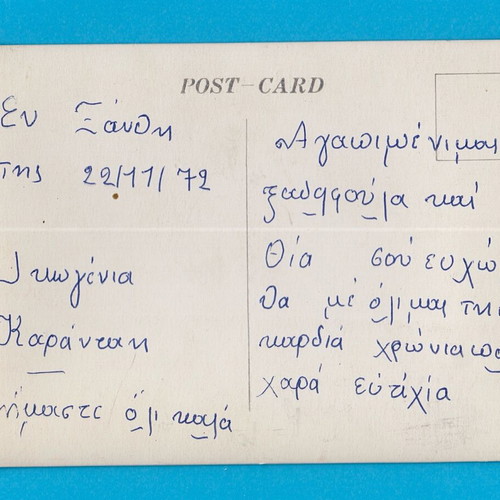 POST-CARD
Εν Ξάνθη
της 22/11/72
Ικωγένια
Καράντακη
ήμαστε όλι καλά
Αγαωιμένιμαι
ξαδρφούλα καί
Θία σού ευχώ
θα μέ όλι μαι τηι
καρδιά χρώνια πο
χαρά εύτιχία